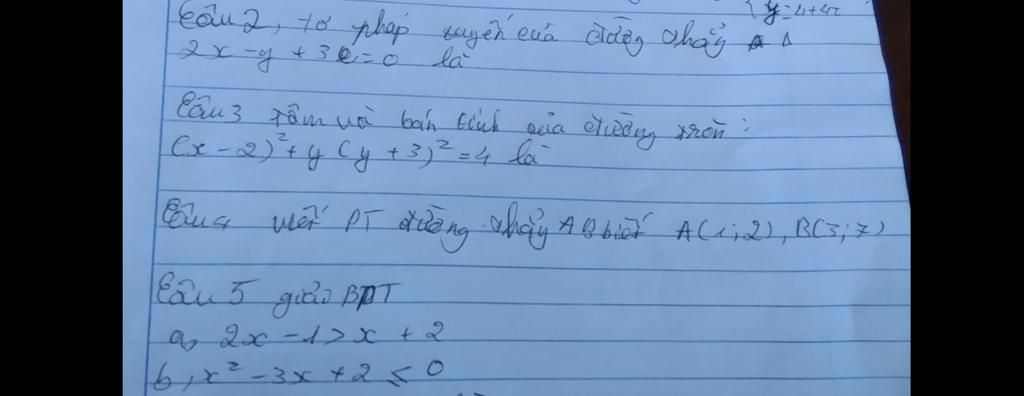 { y = 4+4t
Câu 2, tơ pháp tuyến của đường thẳng Δ
2x - y + 3 = 0 là
Câu 3 tâm và bán kính của đường tròn:
(x - 2)² + y (y + 3)² = 4 là
Câu 4 viết PT đường thẳng AB biết A(1;2), B(3;7)
Câu 5 giải BPT
a, 2x - 1 > x + 2
b, x² - 3x + 2 ≤ 0